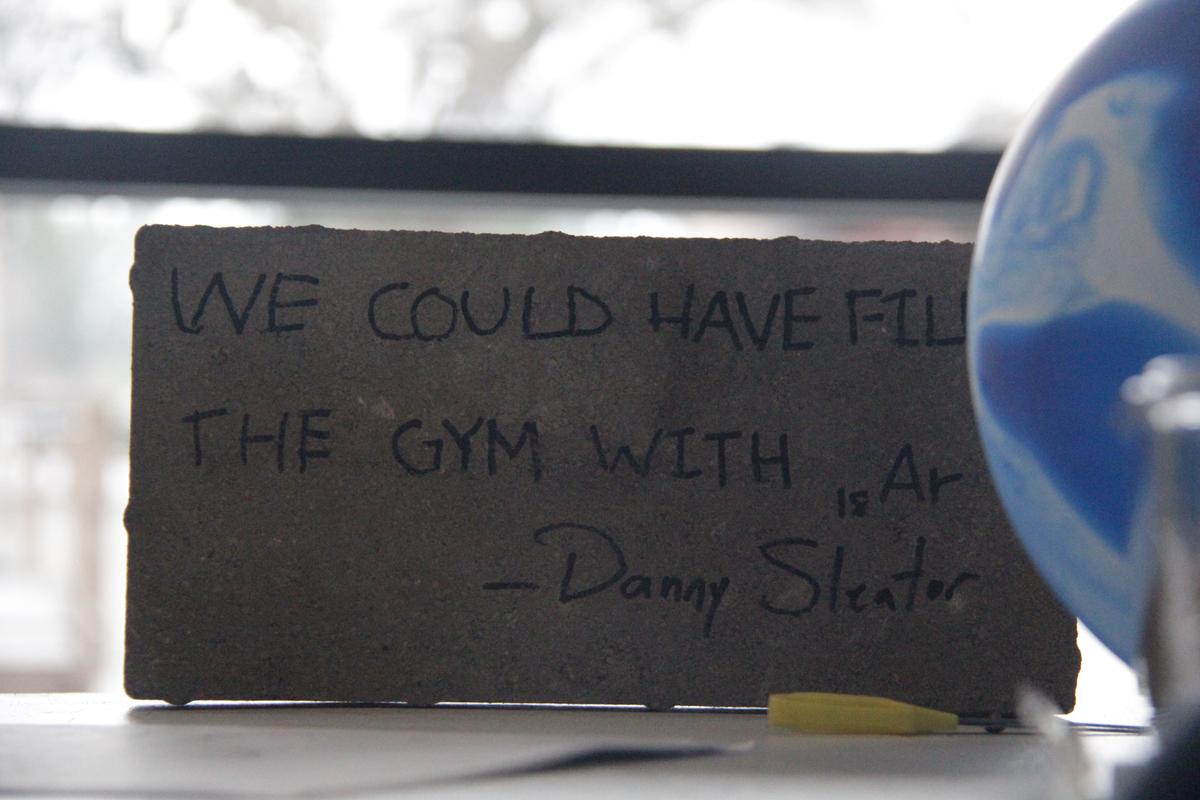 WE COULD HAVE FILL
THE GYM WITH 18 Ar
— Danny Sleator